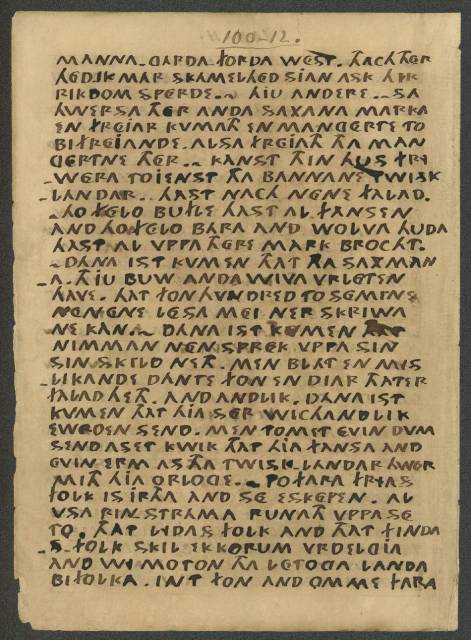 100-12.
MANNA-GARDA FORDA WEST. THACH THER
HED IK MAR SKAMELHED SIAN ASK HIR
RIKDOM SPERDE. ~ THIU ANDERE - - SA
HWERSA THER ANDA SAXANA MARKA
EN FREIAR KVMATH EN MANGERTE TO
BI FREIANDE. ALSA FREIATH THA MAN
GERTNE THER - - KANST THIN HUS FRY
WERA TOIENST THA BANNANE TWISK
-LANDAR - - HAST NACH NENE FALAD.
-HO FELO BUFLE HAST AL FANSEN
AND HO FELO BARA AND WOLVA HUDA
HAST AL VPPA THERE MARK BROCHT.
-DANA IST KVMEN THAT THA SAXMAN
A. THIU BUW ANDA WIVA VRLETEN
HAVE. THAT FON HVNDRED TO SEMENE
NENENE LESA MEI NER SKRIWA
NE KAN. ~ DANA IST KVMEN THAT
NIMMAN NEN SPREK VPPA SIN
SIN SKILD NETH. MEN BLAT EN MIS
-LIKANDE DANTE FON EN DIAR THATER
FALAD HETH. AND ANDLIK. DANA IST
KVMEN THAT HIA SER WICHANDLIK
EWRDEN SEND. MEN TOMET EVIN DVM
SEND ASET KWIK THAT HIA FANSA AND
EVIN ERM AS THA TWISK-LANDAR HWER
MITH HIA ORLOGE. ~ TO FARA FRYAS
FOLK IS IRTHA AND SE ESKEPEN. AL
VSA RIN STRAMA RUNATH VPPA SE
TO. THAT LYDAS FOLK AND THAT FINDA
-S FOLK SKIL EKKORUM VRDELGIA
AND WI MOTON THA LETOGA LANDA
BIFOLKA. INT FON AND OMME FARA